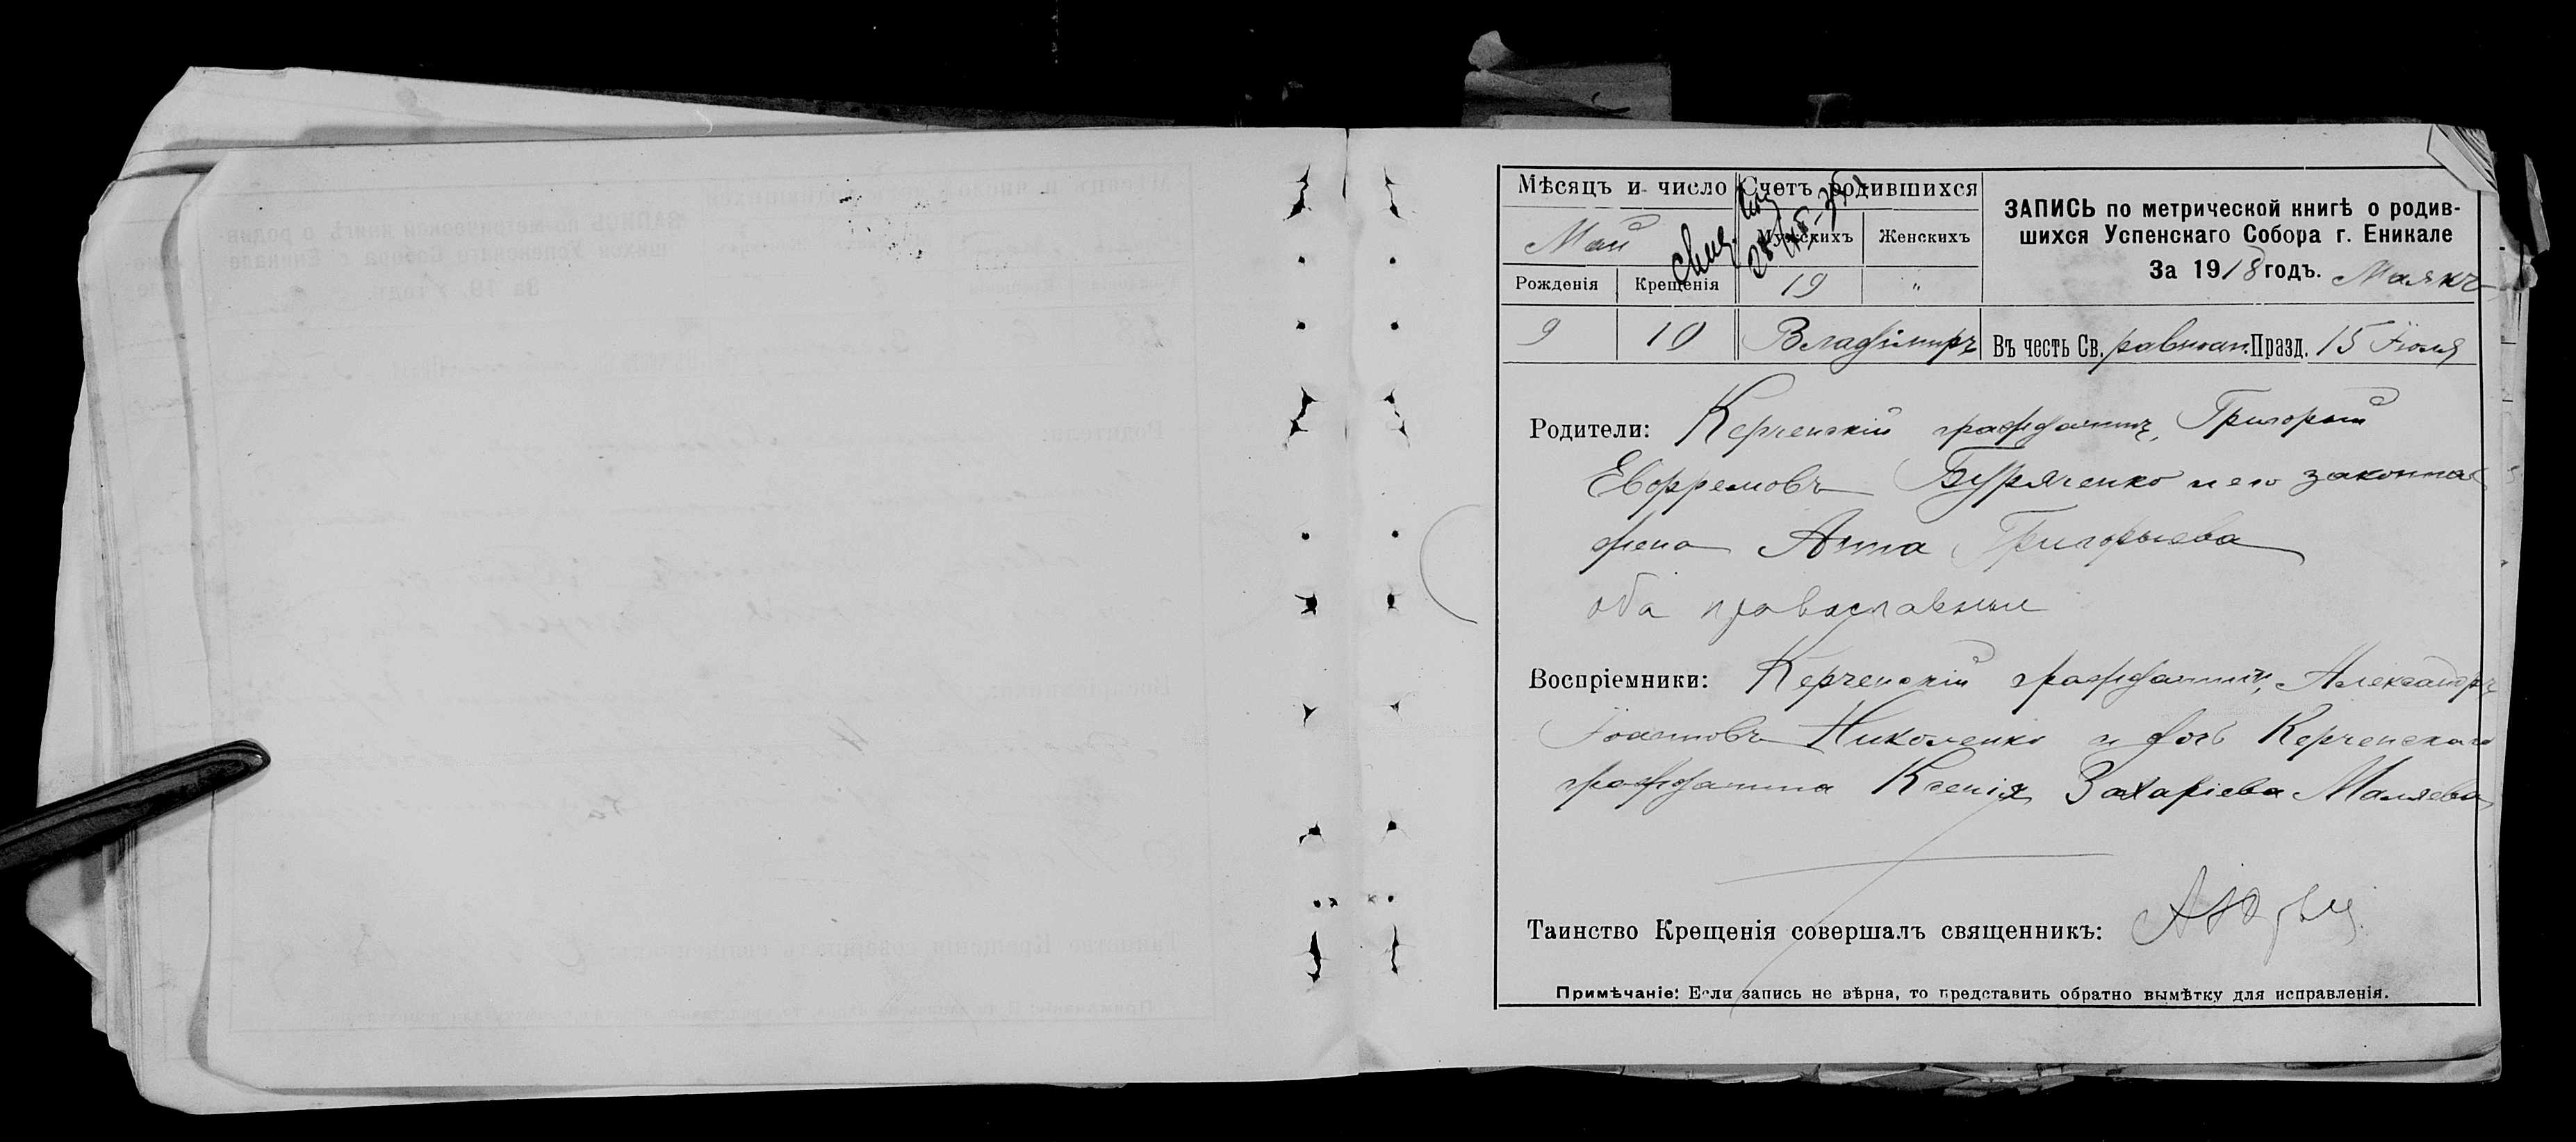 Мѣсяцъ и число
Счетъ родившихся
Май
Мужскихъ
Женскихъ
Рожденія
Крещенія
19
"
ЗАПИСЬ по метрической книгѣ о родив-
шихся Успенскаго Собора г. Еникале
За 1918 годъ. Маякъ
9
10
Владиміръ
Въ честь Св. равноап. Празд. 15 Іюля
Родители: Керченскій гражданинъ, Григорий
Ефремовъ Буряченко и его законная
жена Анна Григорьева
оба православные
Воспріемники: Керченскій гражданинъ, Александръ
Іоанновъ Николенко и дочь Керченскаго
гражданина Ксенія Захаріева Маляева
Таинство Крещенія совершалъ священникъ:
Примѣчаніе: Если запись не вѣрна, то представить обратно вымѣтку для исправленія.